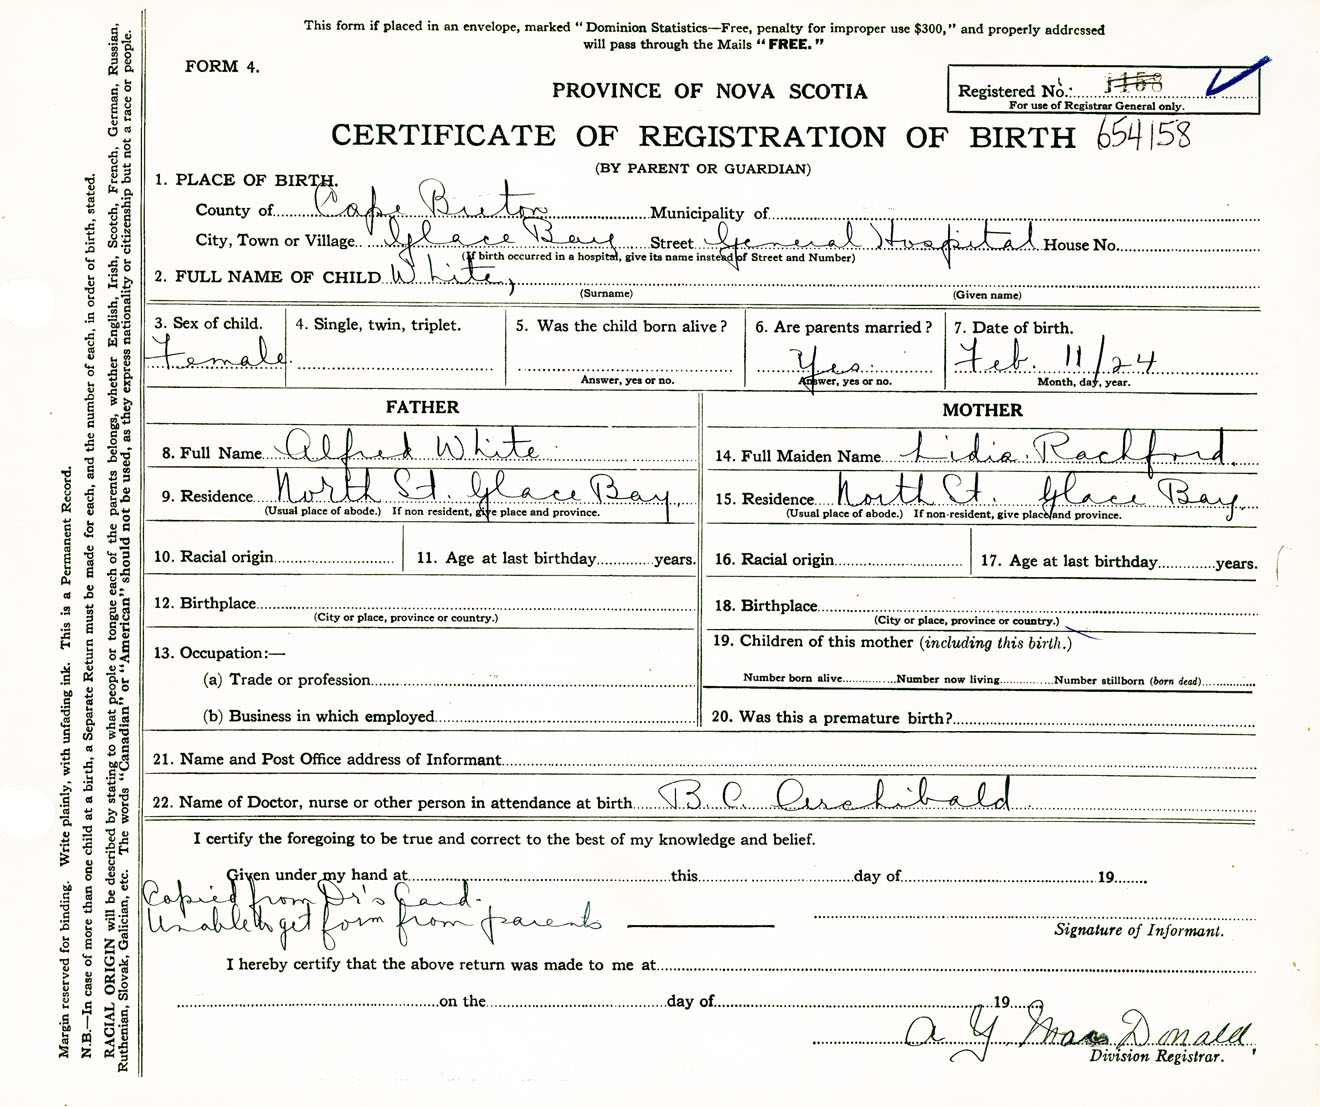 This form if placed in an envelope, marked "Dominion Statistics—Free, penalty for improper use $300," and properly addressed
will pass through the Mails "FREE."
FORM 4.
PROVINCE OF NOVA SCOTIA
Registered No.: 1158
For use of Registrar General only.
CERTIFICATE OF REGISTRATION OF BIRTH 654158
(BY PARENT OR GUARDIAN)
1. PLACE OF BIRTH.
County of Cape Breton Municipality of
City, Town or Village Glace Bay Street General Hospital House No.
(If birth occurred in a hospital, give its name instead of Street and Number)
2. FULL NAME OF CHILD White,
(Surname) (Given name)
3. Sex of child. 4. Single, twin, triplet. 5. Was the child born alive? 6. Are parents married? 7. Date of birth.
Female. Yes. Feb. 11/24
Answer, yes or no. Answer, yes or no. Month, day, year.
FATHER MOTHER
8. Full Name Alfred White 14. Full Maiden Name Lidia Rachford.
9. Residence North St. Glace Bay. 15. Residence North St. Glace Bay.
(Usual place of abode.) If non resident, give place and province. (Usual place of abode.) If non-resident, give place and province.
10. Racial origin 11. Age at last birthday years. 16. Racial origin 17. Age at last birthday years.
12. Birthplace 18. Birthplace
(City or place, province or country.) (City or place, province or country.)
13. Occupation:— 19. Children of this mother (including this birth.)
(a) Trade or profession Number born alive Number now living Number stillborn (born dead)
(b) Business in which employed 20. Was this a premature birth?
21. Name and Post Office address of Informant
22. Name of Doctor, nurse or other person in attendance at birth B. C. Archibald
I certify the foregoing to be true and correct to the best of my knowledge and belief.
Given under my hand at this day of 19
Copied from Dr's Card-
Unable to get form from parents
Signature of Informant.
I hereby certify that the above return was made to me at
on the day of 19
A Y MacDonald
Division Registrar.
Margin reserved for binding. Write plainly, with unfading ink. This is a Permanent Record.
N.B.—In case of more than one child at a birth, a Separate Return must be made for each, and the number of each, in order of birth, stated.
RACIAL ORIGIN will be described by stating to what people or tongue each of the parents belongs, whether English, Irish, Scotch, French, German, Russian,
Ruthenian, Slovak, Galician, etc. The words "Canadian" or "American" should not be used, as they express nationality or citizenship but not a race or people.